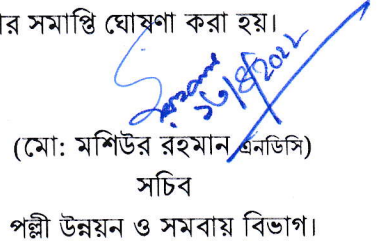 র সমাপ্তি ঘোষণা করা হয়।
১৬/৪/২০২২
(মো: মশিউর রহমান এনডিসি)
সচিব
পল্লী উন্নয়ন ও সমবায় বিভাগ।